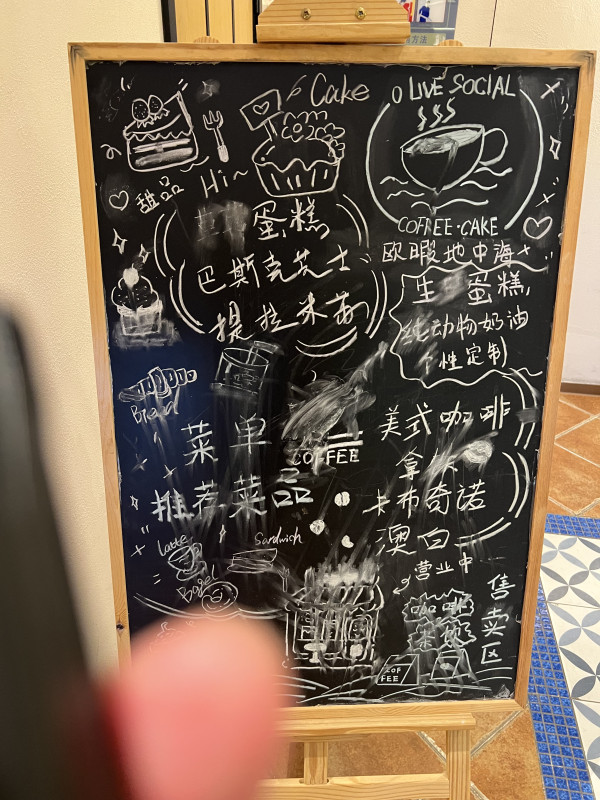 Cake
O LIVE SOCIAL
甜品
Hi~
COFFEE·CAKE
蛋糕
巴斯克芝士
提拉米苏
欧暇地中海
生 蛋糕
纯动物奶油
个性定制
Bread
菜单
COFFEE
推荐菜品
美式咖啡
拿
卡布奇诺
澳白
营业中
Latte
Sandwich
Bagel
咖啡
售卖区
COF
FEE